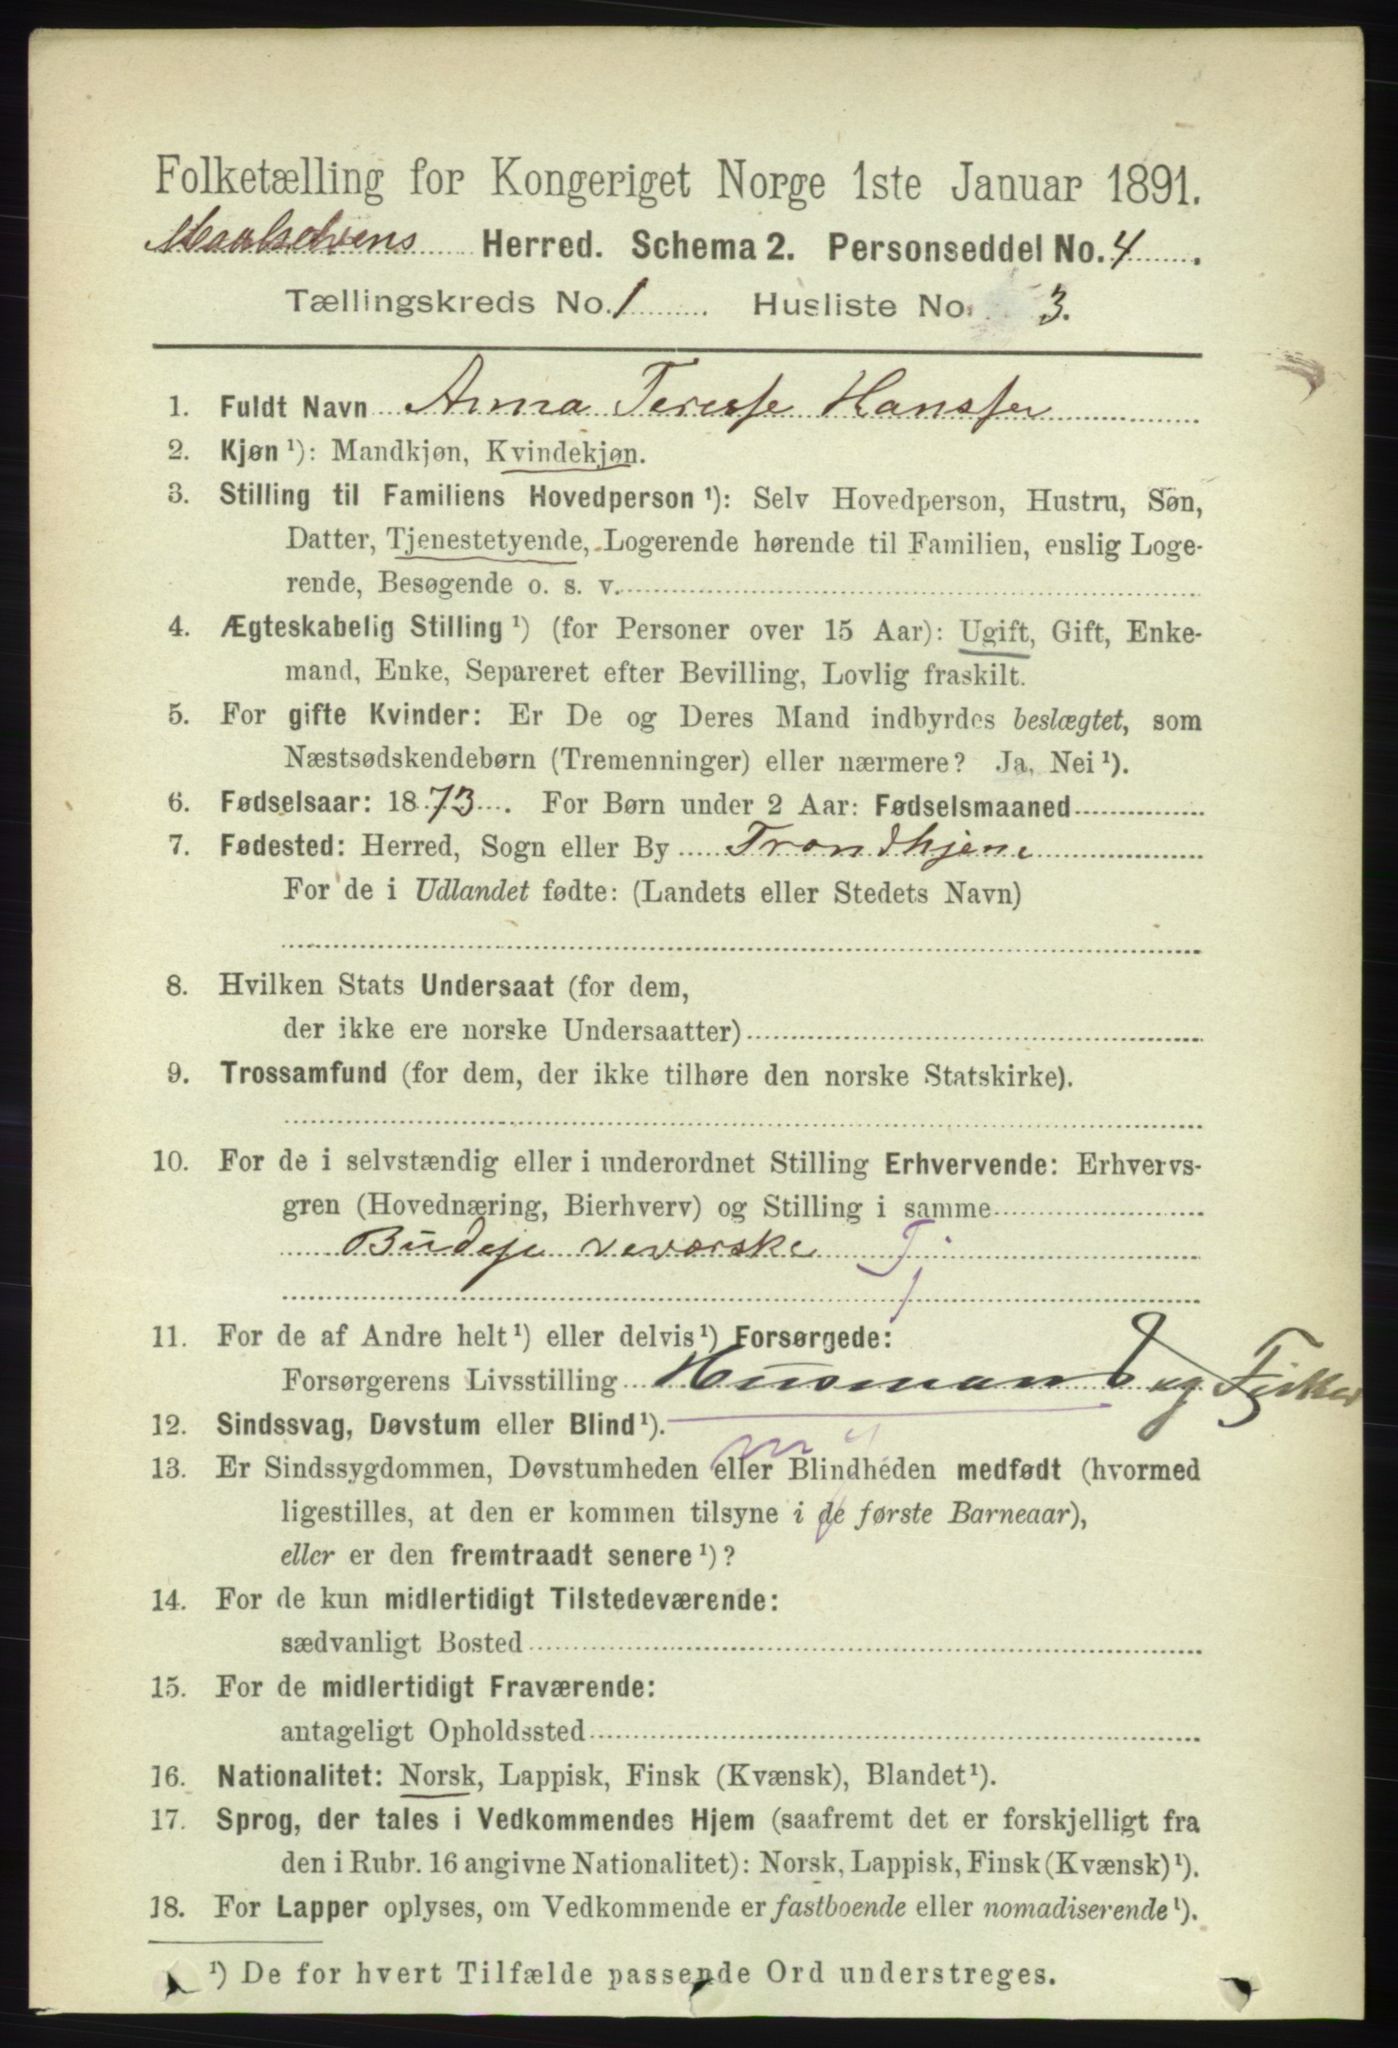 Folketælling for Kongeriget Norge 1ste Januar 1891.
Maalselvens Herred. Schema 2. Personseddel No. 4.
Tællingskreds No. 1. Husliste No. 3.
1. Fuldt Navn Anna Terese Hansen
2. Kjøn ¹): Mandkjøn, Kvindekjøn.
3. Stilling til Familiens Hovedperson ¹): Selv Hovedperson, Hustru, Søn,
Datter, Tjenestetyende, Logerende hørende til Familien, enslig Loge-
rende, Besøgende o. s. v.
4. Ægteskabelig Stilling ¹) (for Personer over 15 Aar): Ugift, Gift, Enke-
mand, Enke, Separeret efter Bevilling, Lovlig fraskilt.
5. For gifte Kvinder: Er De og Deres Mand indbyrdes beslægtet, som
Næstsødskendebørn (Tremenninger) eller nærmere? Ja, Nei ¹).
6. Fødselsaar: 1873. For Børn under 2 Aar: Fødselsmaaned
7. Fødested: Herred, Sogn eller By Trondhjem
For de i Udlandet fødte: (Landets eller Stedets Navn)
8. Hvilken Stats Undersaat (for dem,
der ikke ere norske Undersaatter)
9. Trossamfund (for dem, der ikke tilhøre den norske Statskirke).
10. For de i selvstændig eller i underordnet Stilling Erhvervende: Erhvervs-
gren (Hovednæring, Bierhverv) og Stilling i samme
Budeje Tj
11. For de af Andre helt ¹) eller delvis ¹) Forsørgede:
Forsørgerens Livsstilling Husmand og Fisker
12. Sindssvag, Døvstum eller Blind ¹).
13. Er Sindssygdommen, Døvstumheden eller Blindheden medfødt (hvormed
ligestilles, at den er kommen tilsyne i de første Barneaar),
eller er den fremtraadt senere ¹)?
14. For de kun midlertidigt Tilstedeværende:
sædvanligt Bosted
15. For de midlertidigt Fraværende:
antageligt Opholdssted
16. Nationalitet: Norsk, Lappisk, Finsk (Kvænsk), Blandet ¹).
17. Sprog, der tales i Vedkommendes Hjem (saafremt det er forskjelligt fra
den i Rubr. 16 angivne Nationalitet): Norsk, Lappisk, Finsk (Kvænsk) ¹).
18. For Lapper oplyses, om Vedkommende er fastboende eller nomadiserende ¹).
¹) De for hvert Tilfælde passende Ord understreges.